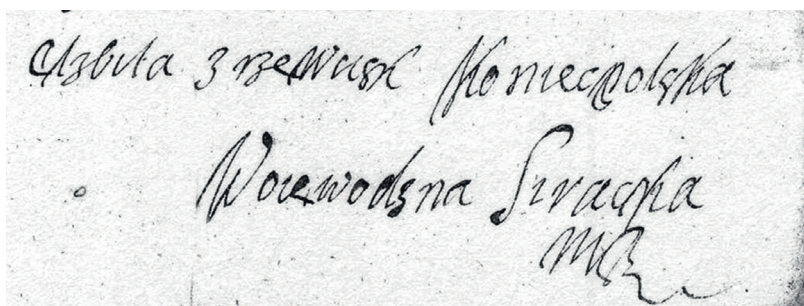 Elzbita z rzewusk Koniecpolska
Woiewodzna Siracka
MR